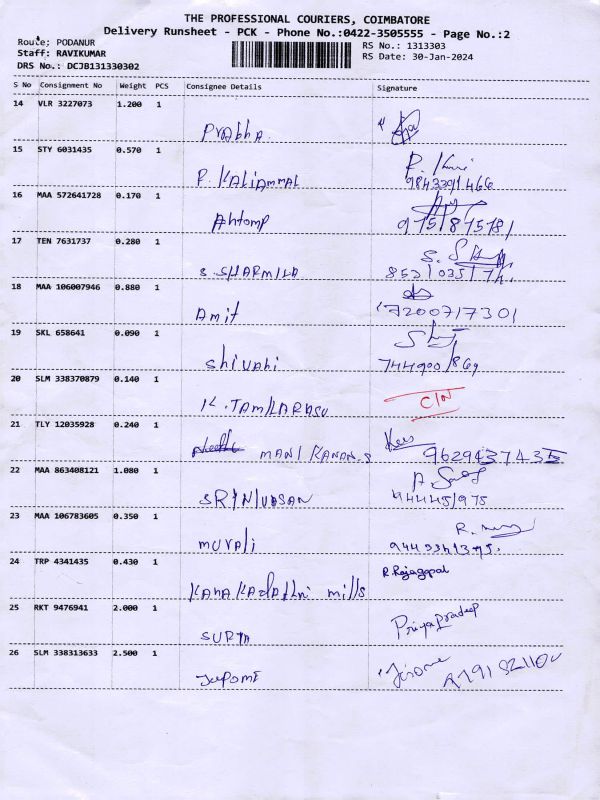 THE PROFESSIONAL COURIERS, COIMBATORE
Delivery Runsheet - PCK - Phone No.:0422-3505555 - Page No.:2
Route: PODANUR
RS No.: 1313303
Staff: RAVIKUMAR
RS Date: 30-Jan-2024
DRS No.: DCJB131330302
S No Consignment No Weight PCS Consignee Details Signature
14 VLR 3227073 1.200 1
Prabha
15 STY 6031435 0.570 1
P. KALIAMMAL
16 MAA 572641728 0.170 1
17 TEN 7631737 0.280 1
S. SHARMILA
18 MAA 106007946 0.880 1
Amit
19 SKL 658641 0.090 1
Shivani
20 SLM 338370879 0.140 1
K. TAMILARASU
21 TLY 12035928 0.240 1
MANIKANAN.S
22 MAA 863408121 1.080 1
SRINIVASAN
23 MAA 106783605 0.350 1
murali
24 TRP 4341435 0.430 1
R. Rajagopal
mills
25 RKT 9476941 2.000 1
Priyapradeep
SURYA
26 SLM 338313633 2.500 1
Jerome